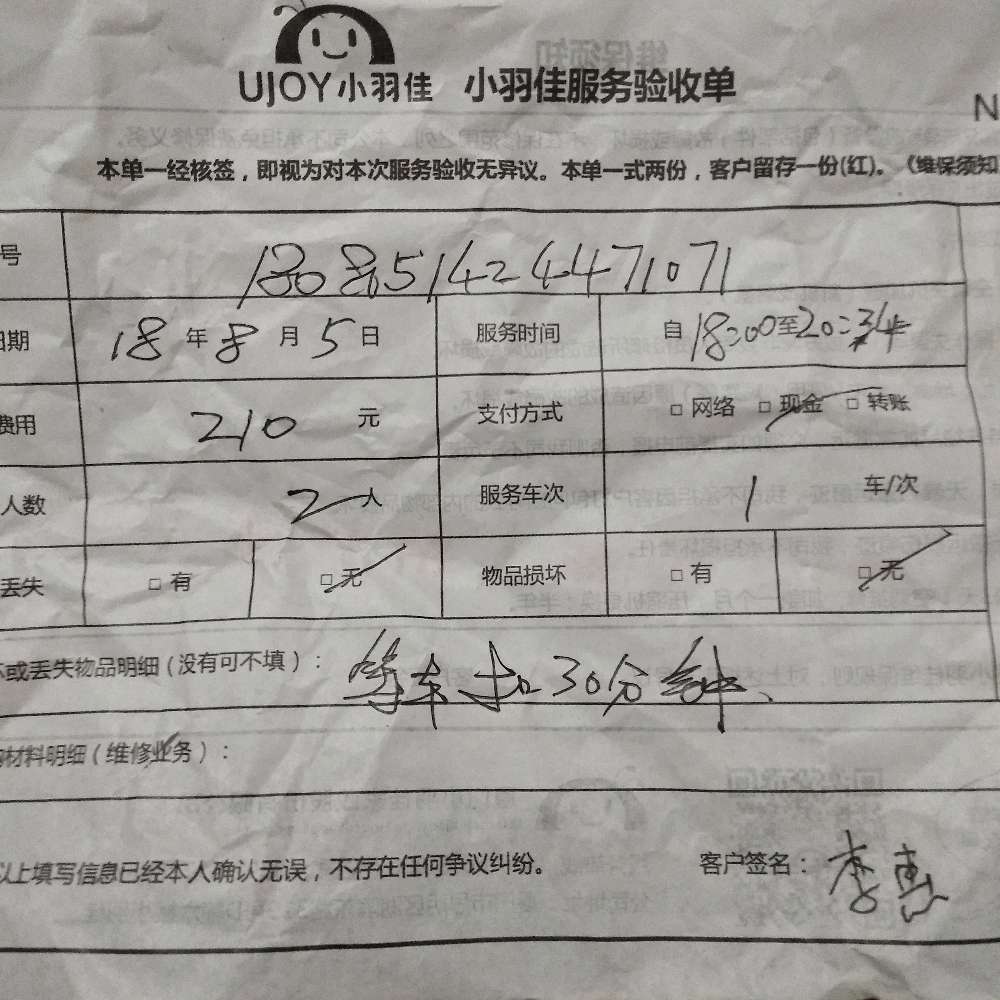 UJOY小羽佳 小羽佳服务验收单
N
本单一经核签，即视为对本次服务验收无异议。本单一式两份，客户留存一份(红)。（维保须知
号 1808051424471071
日期 18 年 8 月 5 日 服务时间 自 18:00 至 20:34
费用 210 元 支付方式 □ 网络 □ 现金 □ 转账
人数 2 人 服务车次 1 车/次
丢失 □ 有 □ 无 物品损坏 □ 有 □ 无
坏或丢失物品明细（没有可不填）： 等车扣30分钟、
材料明细（维修业务）：
以上填写信息已经本人确认无误，不存在任何争议纠纷。 客户签名： 李惠